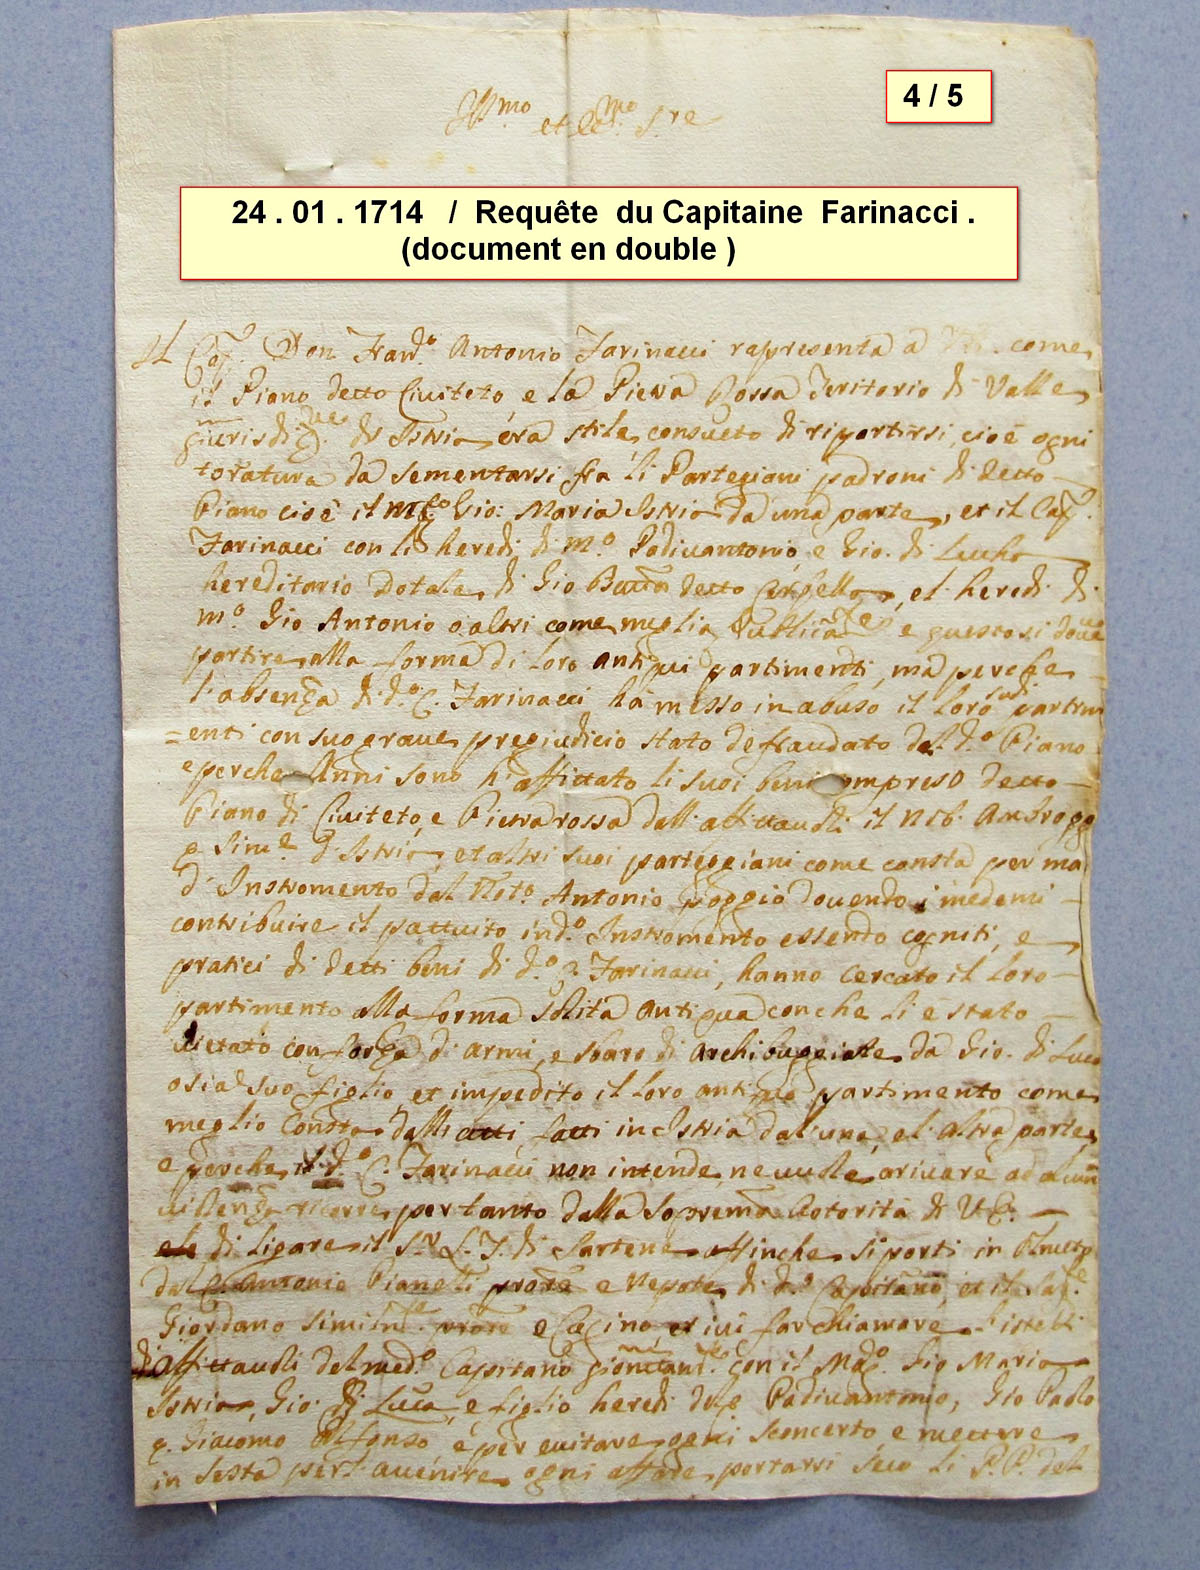 4 / 5
Ill.mo et Ecc.mo S.re
24 . 01 . 1714 / Requête du Capitaine Farinacci .
(document en double )
Il Cap. Don Franc.o Antonio Farinacci rapresenta a come
il Piano detto Civiteto e la Pietra Rossa Teritorio di Valle
giurisdi.ne d'Istria era stile consueto di ripartirsi, cioè ogni
toratura da sementarsi fra li Partegiani padroni di detto
Piano cioè il M.co Gio: Maria Istria da una parte, et il Cap.
Farinacci con li heredi di m.o Padivantonio e Gio. di Lucho
hereditario dotale di Gio detto et heredi di
m.o Gio Antonio o altri come meglio e questo si deve
partire alla forma di loro antiqui partimenti, ma perche
l'absenza di d.o C. Farinacci ha messo in abuso il loro sud.i partim
=enti con suo grave pregiudicio stato defraudato del d.o Piano
e perche Anni sono h'affittato li suoi beni compreso detto
Piano di Civiteto, e Pietrarossa dall affittauoli il Nob. Ambrogg
q. Sim.e d'Istria, et altri suoi parteggiani come consta per ma
d'Instromento dal Not.o Antonio Poggio dovendo i medemi
contribuire il pattuito in d.o Instromento essendo cogniti, e
pratici di detti beni di d.o C. Farinacci, hanno cercato il loro
partimento alla forma solita antiqua con che li è stato
vietato con forza di armi, e sbaro di archibuggiate da Gio. di Luca
o sia suo figlio et impedito il loro antiquo partimento come
meglio Consta dalli atti fatti in Istria dal'una, el'altra parte
e perche il d.o C. Farinacci non intende, ne vuole arivare ad alcun
violenza ricorre per tanto dalla Soprema Autorità di V.E.
di ligare il S.r L.T. di Sartene affinche si porti in Olmeto
dal C. Antonio Pianelli e Nepote di d.o Capitano, et il Cap.e
Giordano e Cucino, et ivi far chiamare l'istessi
affittauoli del med.o Capitano con il Mag.o Gio Maria
Istria, Gio: di Luca, e figlio heredi del q. Padivantonio, Gio Paolo
q. Giacomo Alfonso, e per evitare ogni sconcerto e mettere
in sesta per l'avenire ogni affare portarsi seco li P.P. del